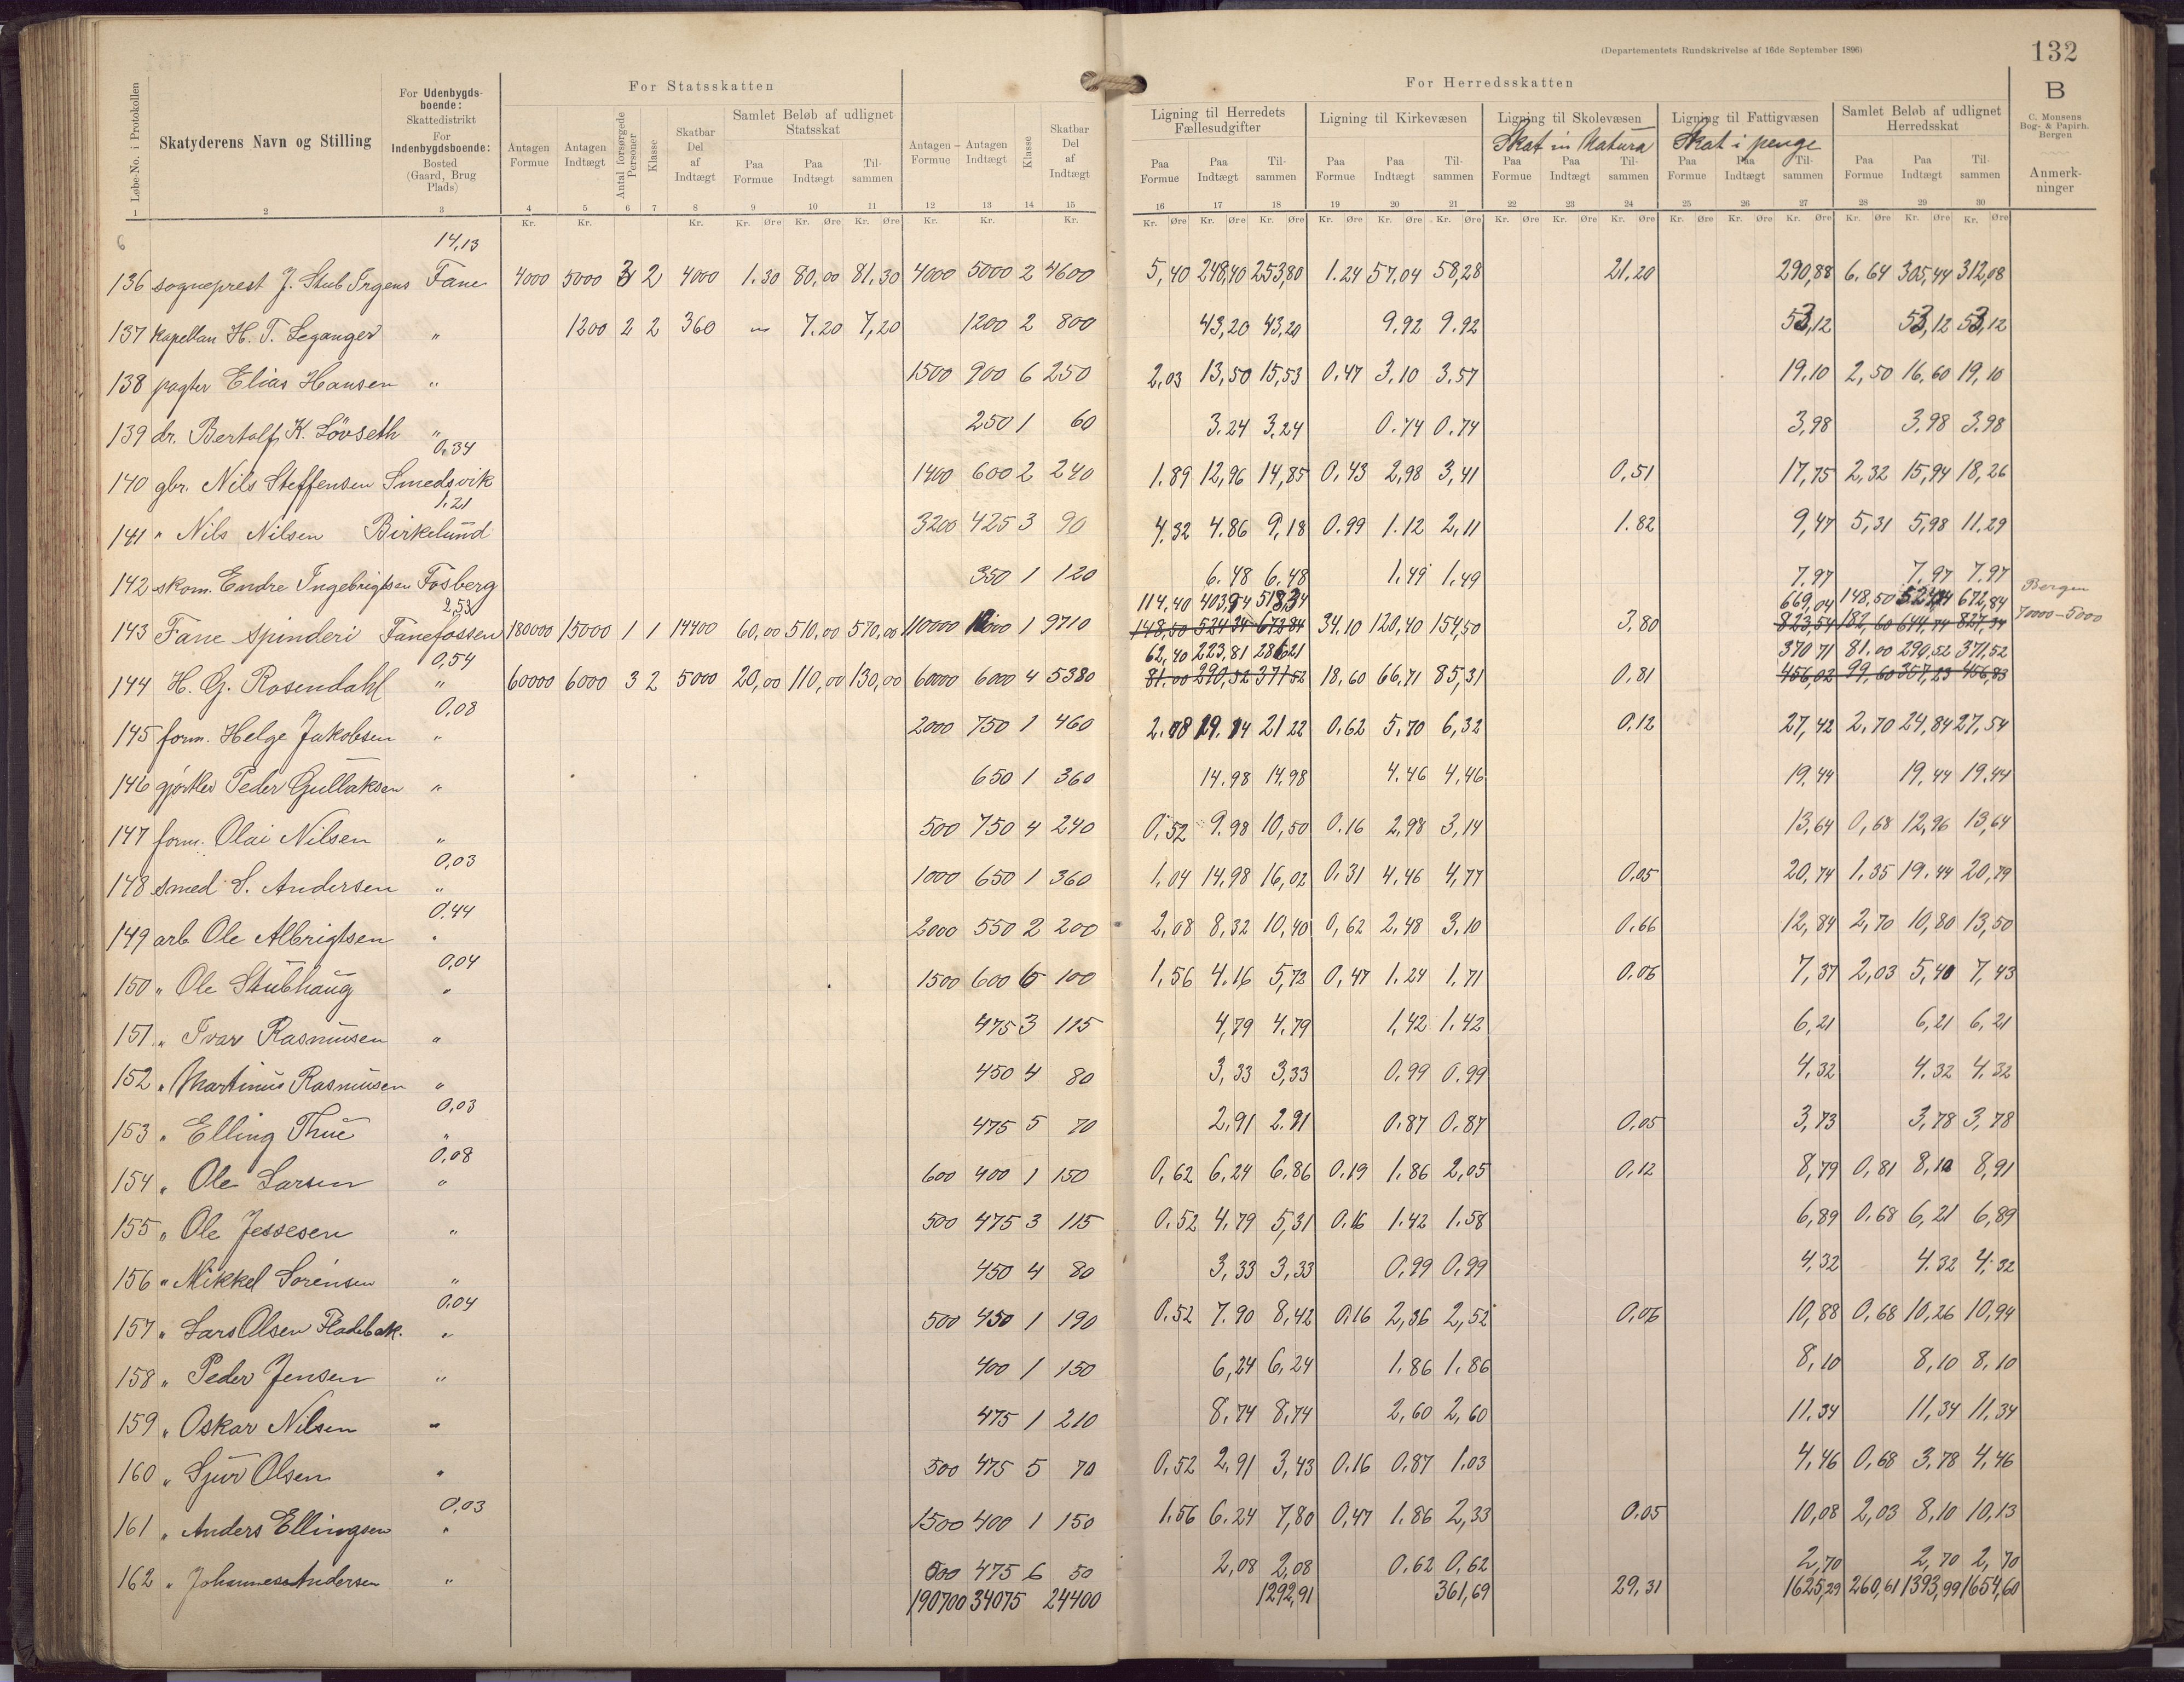 (Departementets Rundskrivelse af 16de September 1896)
132
B
C. Monsens Bog- & Papirh. Bergen
Anmerkninger
Løbe-No. i Protokollen
Skatyderens Navn og Stilling
For Udenbygdsboende: Skattedistrikt
For Indenbygdsboende: Bosted (Gaard, Brug Plads)
For Statsskatten
Antagen Formue
Antagen Indtægt
Antal forsørgede Personer
Klasse
Skatbar Del af Indtægt
Samlet Beløb af udlignet Statsskat
Paa Formue
Paa Indtægt
Tilsammen
Antagen Formue
Antagen Indtægt
Klasse
Skatbar Del af Indtægt
For Herredsskatten
Ligning til Herredets Fællesudgifter
Ligning til Kirkevæsen
Ligning til Skolevæsen
Skat in Natura
Ligning til Fattigvæsen
Skat i penge
Samlet Beløb af udlignet Herredsskat
Paa Formue Paa Indtægt Tilsammen Paa Formue Paa Indtægt Tilsammen Paa Formue Paa Indtægt Tilsammen Paa Formue Paa Indtægt Tilsammen Paa Formue Paa Indtægt Tilsammen
1 2 3 4 5 6 7 8 9 10 11 12 13 14 15 16 17 18 19 20 21 22 23 24 25 26 27 28 29 30
6 14,13
136 sogneprest J. Stub Irgens Fane 4000 5000 3 2 4000 1.30 80,00 81,30 4000 5000 2 4600 5,40 248,40 253,80 1.24 57,04 58,28 21,20 290,88 6,64 305,44 312,08
137 kapellan H. T. Leganger " 1200 2 2 360 " 7.20 7,20 1200 2 800 43,20 43,20 9.92 9.92 53,12 53,12 53,12
138 pagter Elias Hansen " 1500 900 6 250 2,03 13,50 15,53 0.47 3.10 3.57 19.10 2,50 16.60 19,10
139 dr. Bertolf K. Lövseth " 250 1 60 3.24 3,24 0.74 0.74 3,98 3,98 3.98
0,34
140 gbr. Nils Steffensen Smedsvik 1400 600 2 240 1.89 12,96 14,85 0,43 2,98 3,41 0,51 17,75 2,32 15,94 18,26
1.21
141 " Nils Nilsen Birkelund 3200 425 3 90 4,32 4.86 9,18 0.99 1.12 2,11 1.82 9,47 5,31 5,98 11.29
142 skom. Endre Ingebrigtsen Fosberg 350 1 120 6.48 6.48 1,49 1,49 7.97 7.97 7.97
2,53 114,40 403,94 518,34 669,04 148,50 524,34 672,84 Bergen
143 Fane Spinderi Fanefossen 180000 15000 1 1 14400 60,00 510,00 570,00 110000 10000 1 9710 148,50 524 34 672 84 34.10 120,40 154,50 3,80 823,54 182,60 644,74 827,34 70000-5000
0,54 62,40 223,81 286,21 370 71 81.00 290,52 371,52
144 H. G. Rosendahl " 60000 6000 3 2 5000 20,00 110,00 130,00 60000 6000 4 5380 81.00 290,52 371 52 18,60 66,71 85,31 0,81 456,02 99,60 357,23 456,83
0,08
145 form. Helge Jakobsen " 2000 750 1 460 2.08 19.14 21 22 0.62 5,70 6,32 0,12 27,42 2,70 24,84 27,54
146 gjørtler Peder Gullaksen " 650 1 360 14.98 14.98 4.46 4,46 19,44 19,44 19.44
147 form. Olai Nilsen " 500 750 4 240 0,52 9.98 10,50 0.16 2,98 3,14 13,64 0,68 12,96 13,64
0,03
148 smed S. Andersen " 1000 650 1 360 1,04 14,98 16,02 0.31 4.46 4,77 0.05 20,74 1,35 19.44 20,79
0,44
149 arb. Ole Albrigtsen " 2000 550 2 200 2,08 8,32 10,40 0,62 2,48 3,10 0,66 12,84 2,70 10,80 13,50
0,04
150 " Ole Stubhaug " 1500 600 6 100 1,56 4.16 5,72 0,47 1.24 1,71 0.06 7,37 2,03 5,40 7,43
151 " Ivar Rasmusen " 475 3 115 4,79 4.79 1,42 1.42 6,21 6,21 6,21
152 " Martinus Rasmusen " 450 4 80 3,33 3,33 0.99 0.99 4.32 4.32 4.32
0,03
153 " Elling Thue " 475 5 70 2,91 2.91 0.87 0.87 0.05 3,73 3,78 3,78
0,08
154 " Ole Larsen " 600 400 1 150 0,62 6,24 6.86 0.19 1.86 2,05 0,12 8,79 0,81 8,10 8,91
155 " Ole Jessesen " 500 475 3 115 0.52 4.79 5,31 0.16 1.42 1.58 6,89 0.68 6,21 6,89
156 " Mikkel Sorensen " 450 4 80 3,33 3,33 0,99 0.99 4,32 4.32 4,32
0.04
157 " Lars Olsen Fladebak. " 500 450 1 190 0.52 7.90 8,42 0.16 2,36 2,52 0,06 10,88 0,68 10,26 10,94
158 " Peder Jensen " 400 1 150 6,24 6,24 1.86 1.86 8,10 8,10 8,10
159 " Oskar Nilsen " 475 1 210 8,74 8,74 2,60 2,60 11.34 11,34 11,34
160 " Sjur Olsen " 500 475 5 70 0,52 2,91 3,43 0.16 0,87 1.03 4,46 0,68 3,78 4,46
0,03
161 " Anders Ellingsen " 1500 400 1 150 1.56 6.24 7,80 0,47 1.86 2,33 0.05 10,08 2,03 8,10 10,13
162 " Johannes Andersen " 500 475 6 50 2,08 2,08 0.62 0,62 2,70 2,70 2,70
190700 34075 24400 1292,91 361,69 29,31 1625,29 260,61 1393,99 1654,60